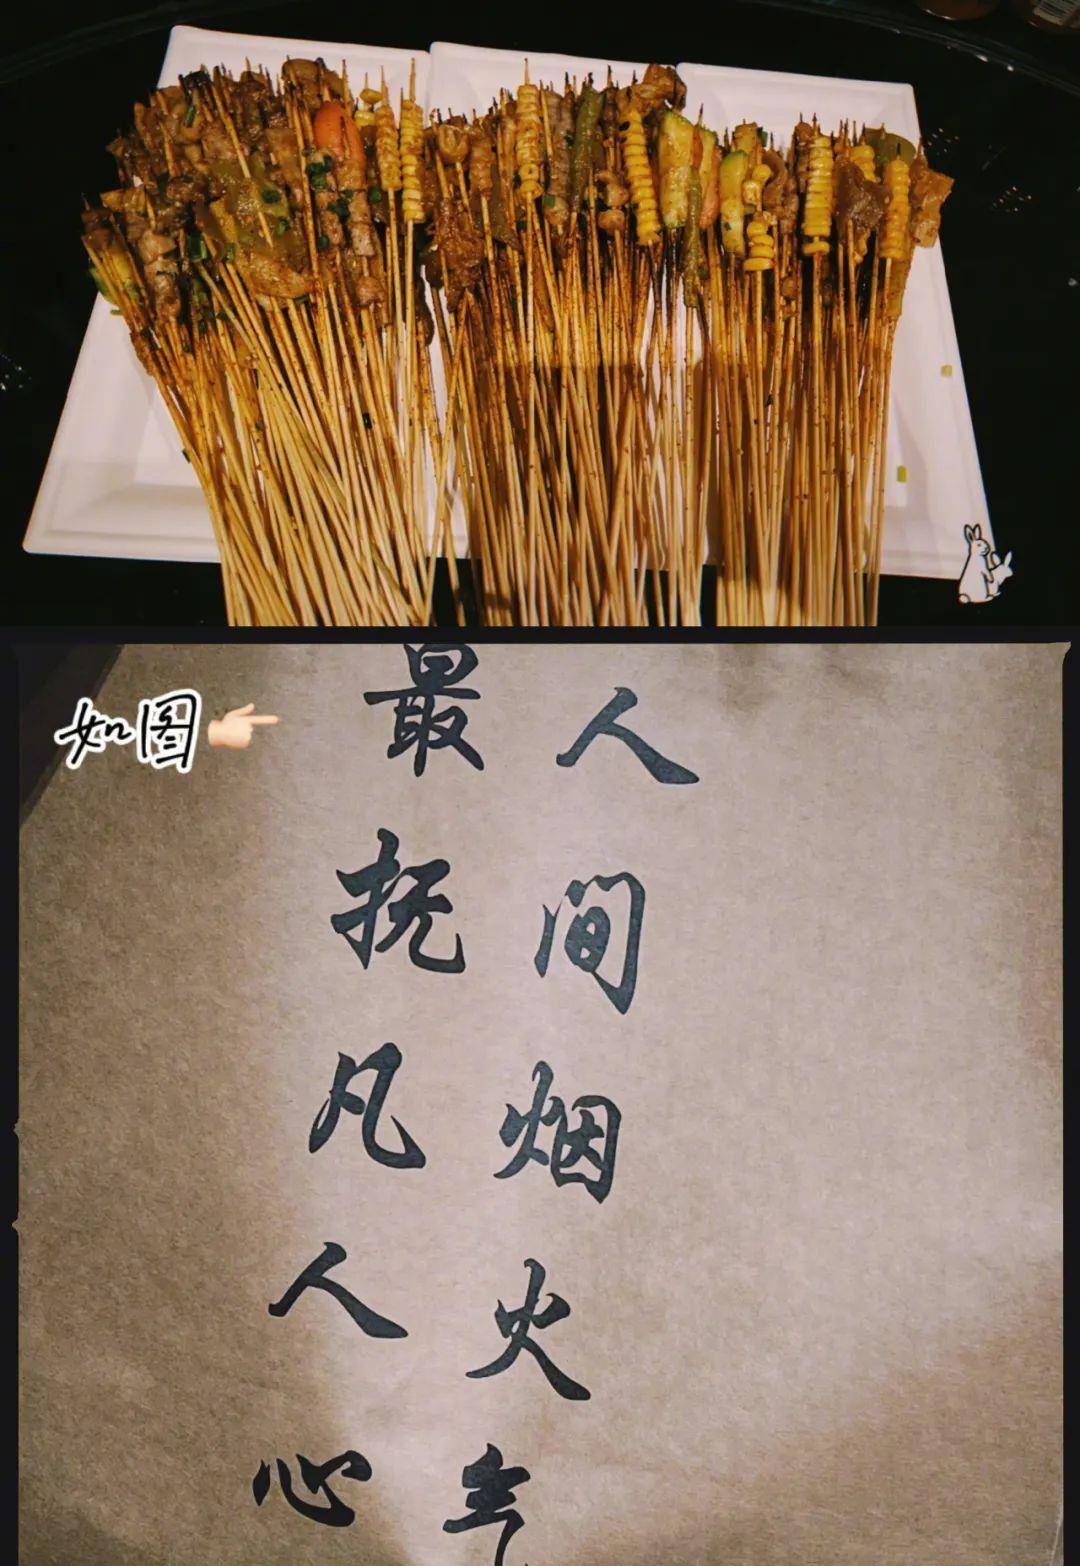 如图
人间烟火气
最抚凡人心